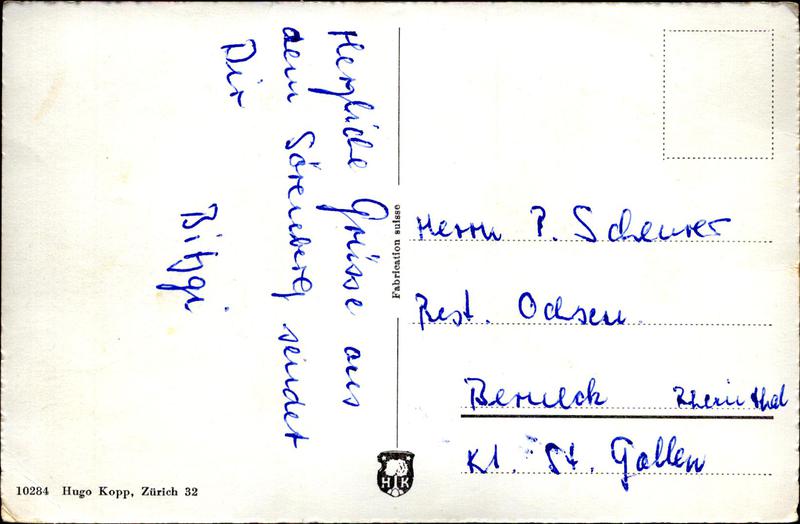 Herzliche Grüsse aus
dem Sörenberg sendet
Dir
Bitzgi.
Fabrication suisse
Herrn P. Scheurer
Rest. Ochsen.
Berneck Rheinthal
Kt. St. Gallen
H K
10284 Hugo Kopp, Zürich 32